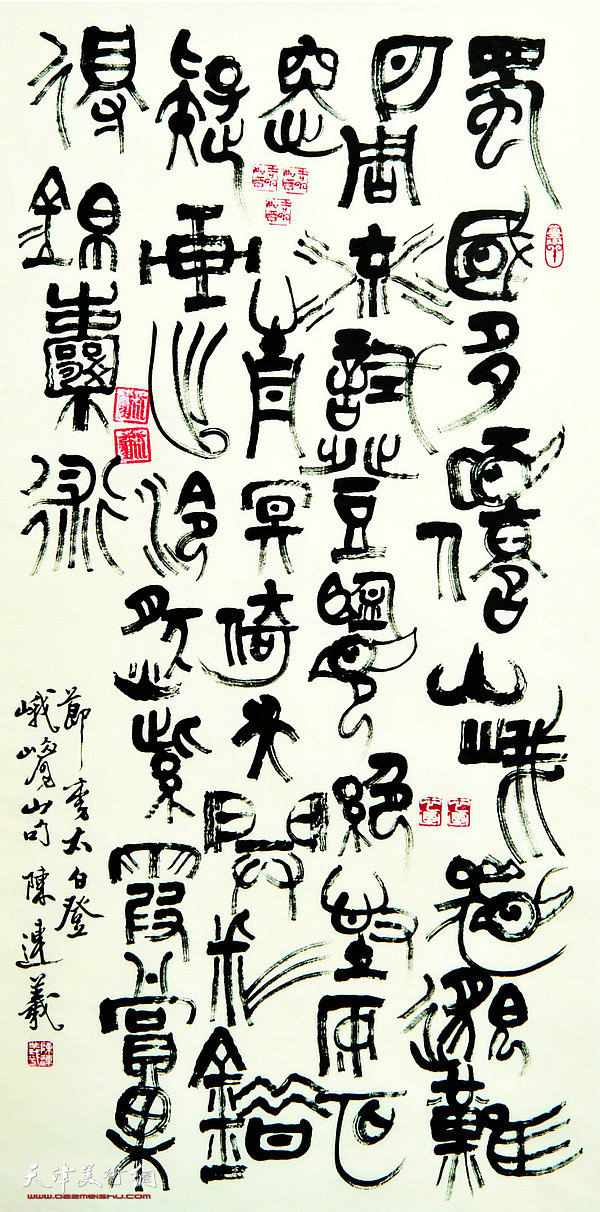 蜀國多僊山峨眉邈難
匹周流試登覽絕怪安可
悉青冥倚天開彩錯
疑畫出泠然紫霞賞果
得錦囊術
節李太白登
峨眉山句 陳連羲
天津美術網
www.022meishu.com